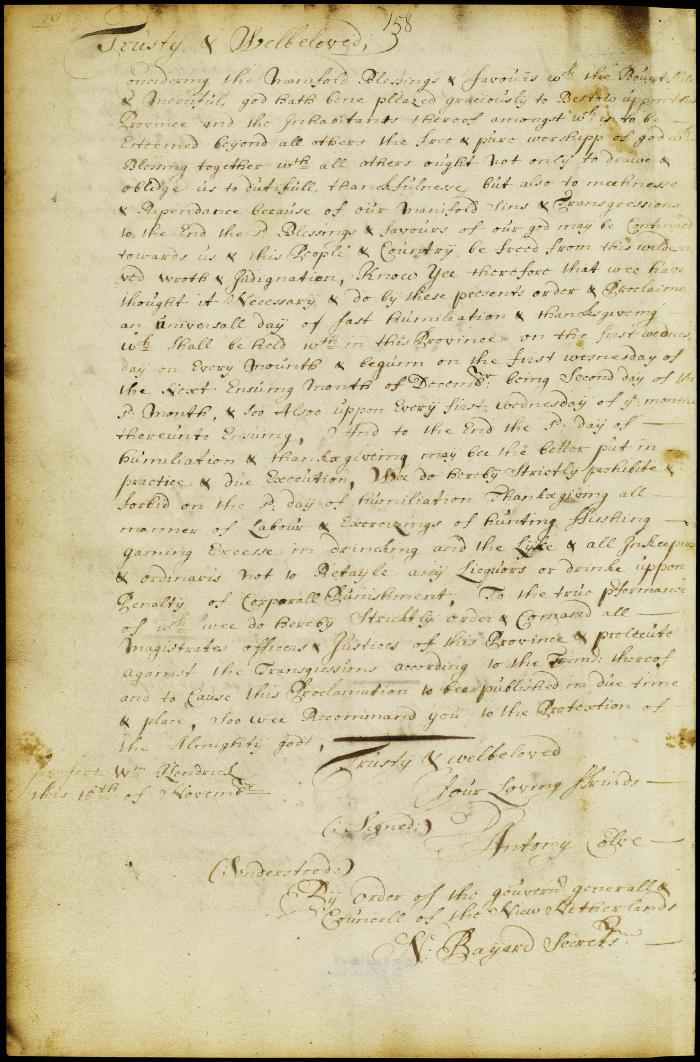 158
Trusty & Welbeloved;
Concidering the Manifold Blessings & favours wch the Bountifull
& Mercifull god hath bene pleazed graciously to Bestow uppon this
Province and the Inhabitants thereof amongst wch is to be
Esteemed beyond all others the free & pure worshipp of god wch
Blessing together wth all others ought Not only to drawe &
obledge us to dutifull thanckfulnesse but also to meekenesse
& Rependance because of our Manifold Sins & Transgressions
to the End the sd Blessings & favours of our god may be Continued
towards us & this People & Country be freed from this weldeser
ved wroth & Indignation, Know Yee therefore that wee have
thought it Necessary & do by these presents order & Proclaime
an universall day of fast humiliation & thanksgiveing
wch Shall be held wth in this Province on the first wednes
day on Every Mounth & begunn on the first wesnesday of
the Next Ensuing Month of Decembr being Second day of the
sd Month, & soo Alsoo uppon Every first wednesday of ye month
thereunto Ensuing, And to the End the sd day of
humiliation & thanksgiveing may bee the better put in
practice & due Execution, Wee do hereby Strictly prohibite &
forbid on the sd day of humiliation Thanksgiving all
manner of Labour & Exercizings of hunting ffisshing
gaming Excesse in drincking and the Lyke & all Inkeepers
& ordinaris Not to Retayle any Liequors or drinke uppon
Penalty of Corporall Punishment, To the true pformance
of wch wee do hereby Stricktly order & Comand all
Magistrates officers & Justices of this Province & prosecute
against the Transgressions according to the Tenns: thereof
and to Cause this Proclamation to bee published in due time
& place, Soo wee Recommand you to the Protextion of
the Almighty god;
Trusty & welbeloved
Wm: Hendrick
this 15th of Novembr
Your Loving ffrinds
(: Signed:)
Antony Colve
(Understood:)
By order of the gouvernr generall &
Councell of the New Netherlands
N: Bayard Secrets